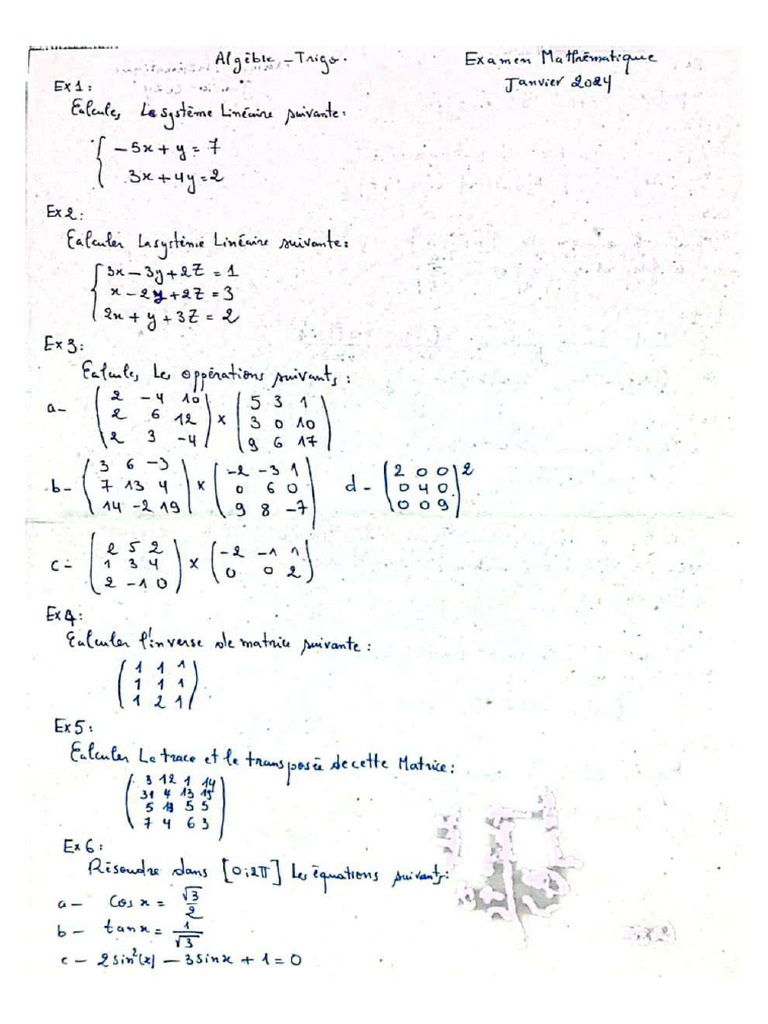 Algèble - Trigo. Examen Mathématique
Janvier 2024
Ex1:
Calcule, Le système Linéaire suivante:
-5x + y = 7
3x + 4y = 2
Ex2:
Calculer La système Linéaire suivante:
3x - 3y + 2Z = 1
x - 2y + 2Z = 3
2x + y + 3Z = 2
Ex3:
Calcule, Les oppérations suivants:
a- (2 -4 10) × (5 3 1)
(2 6 12) (3 0 10)
(2 3 -4) (9 6 17)
b- (3 6 -3) × (-2 -3 1) d- (2 0 0)²
(7 13 4) (0 6 0) (0 4 0)
(14 -2 19) (9 8 -7) (0 0 9)
c- (2 5 2) × (-2 -1 1)
(1 3 4) (0 0 2)
(2 -1 0)
Ex4:
Calculer l'inverse de matrice suivante:
(1 1 1)
(1 1 1)
(1 2 1)
Ex5:
Calculer Le trace et le transposée de cette Matrice:
3 12 1 14
31 4 13 15
5 5 5
7 4 6 3
Ex6:
Résoudre dans [0;2π] Les équations suivants:
a- cos x = √3/2
b- tan x = 1/√3
c- 2sin²(x) - 3sin x + 1 = 0